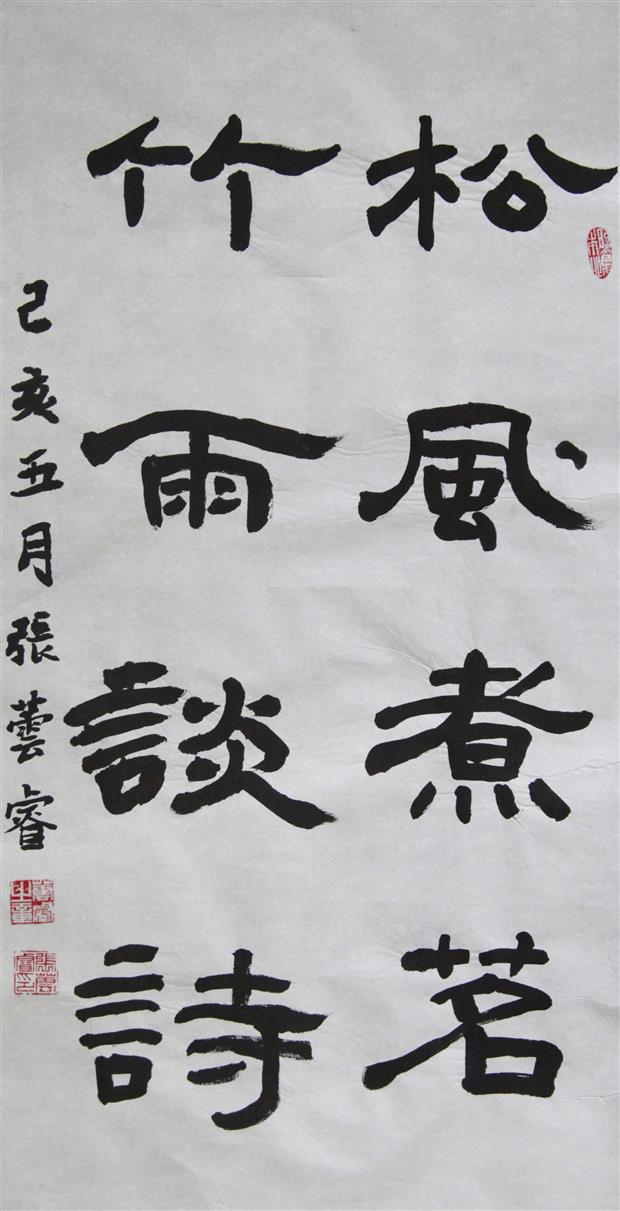 松風煮茗
竹雨談詩
己亥五月張蕓睿